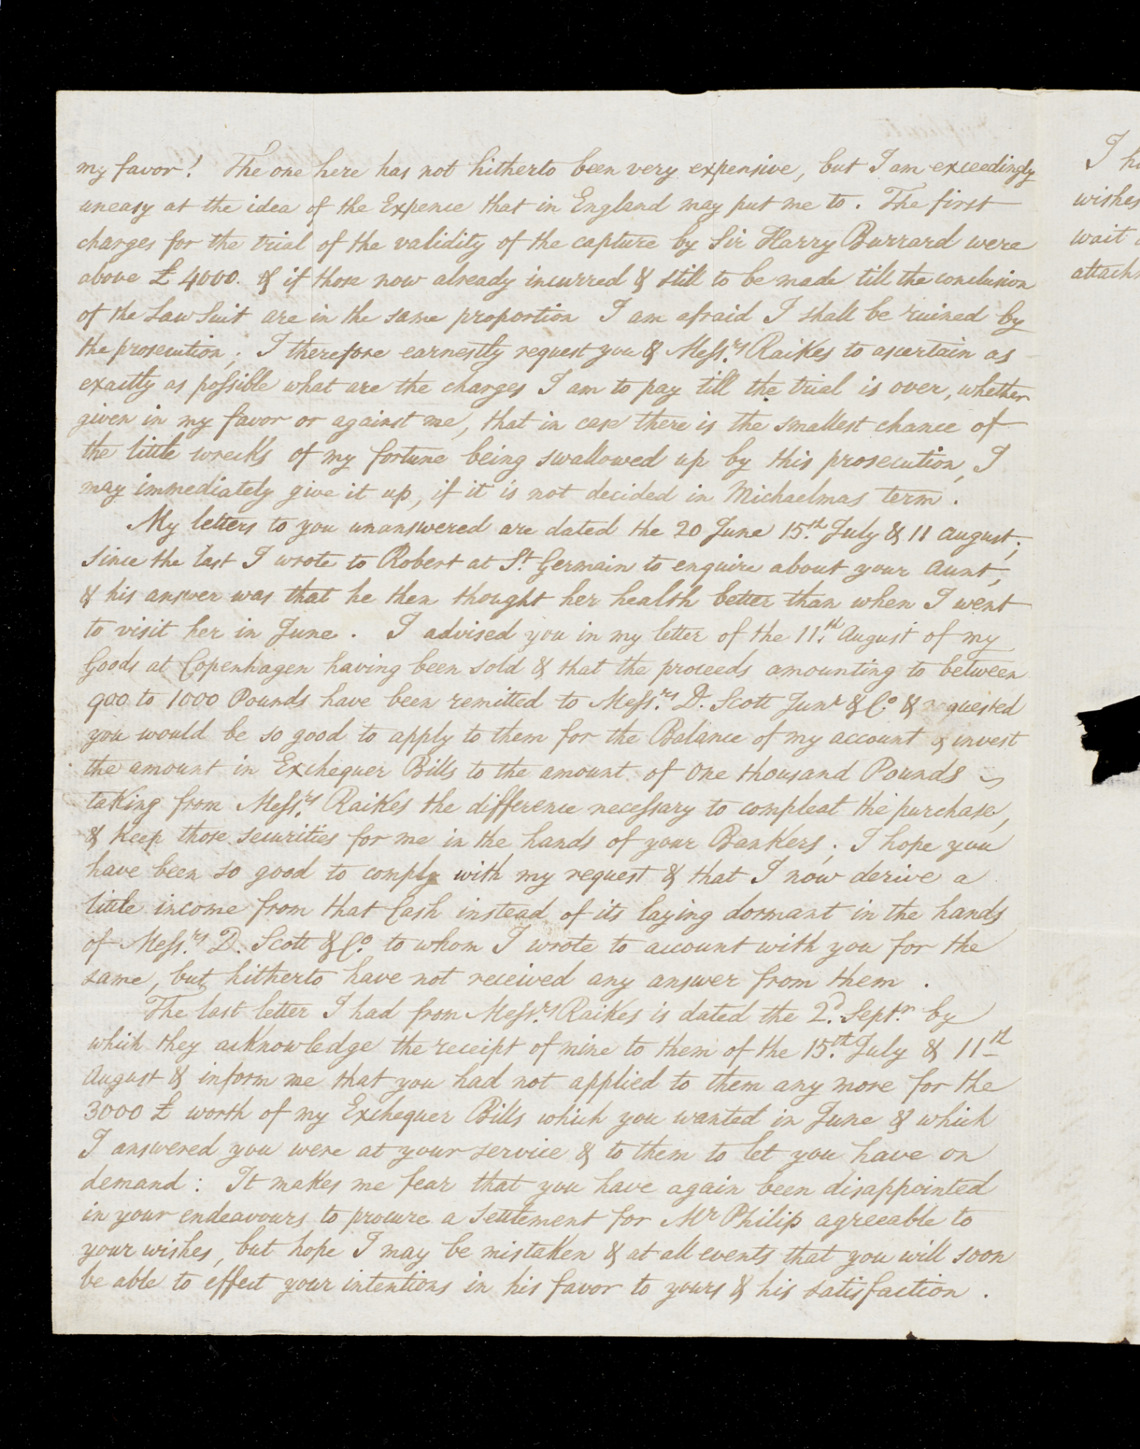 my favor! The one here has not hitherto been very expensive, but I am exceedingly
uneasy at the idea of the Expence that in England may put me to. The first
charges for the trial of the validity of the capture by Sir Harry Burrard were
above £ 4000. & if those now already incurred & still to be made till the conclusion
of the Law Suit are in the same proportion I am afraid I shall be ruined by
the prosecution. I therefore earnestly request you & Messrs Raikes to ascertain as
exactly as possible what are the charges I am to pay till the trial is over, whether
given in my favor or against me, that in case there is the smallest chance of
the little wrecks of my fortune being swallowed up by this prosecution, I
may immediately give it up, if it is not decided in Michaelmas term.
My letters to you unanswered are dated the 20 June 15th July & 11 August;
Since the last I wrote to Robert at St Germain to enquire about your Aunt,
& his answer was that he then thought her health better than when I went
to visit her in June. I advised you in my letter of the 11th August of my
Goods at Copenhagen having been sold & that the proceeds amounting to between
900 to 1000 Pounds have been remitted to Messrs D. Scott Junr & Co & requested
you would be so good to apply to them for the Balance of my account & invest
the amount in Exchequer Bills to the amount of One thousand Pounds
taking from Messrs Raikes the difference necessary to compleat the purchase,
& keep those securities for me in the hands of your Bankers; I hope you
have been so good to comply with my request & that I now derive a
little income from that Cash instead of its laying dormant in the hands
of Messrs D. Scott & Co to whom I wrote to account with you for the
same, but hitherto have not received any answer from them.
The last letter I had from Messrs Raikes is dated the 2d Septr by
which they acknowledge the receipt of mine to them of the 15th July & 11th
August & inform me that you had not applied to them any more for the
3000 £ worth of my Exchequer Bills which you wanted in June & which
I answered you were at your service & to them to let you have on
demand: It makes me fear that you have again been disappointed
in your endeavours to procure a Settlement for Mr Philip agreeable to
your wishes, but hope I may be mistaken & at all events that you will soon
be able to effect your intentions in his favor to yours & his satisfaction.
I
wishes
wait